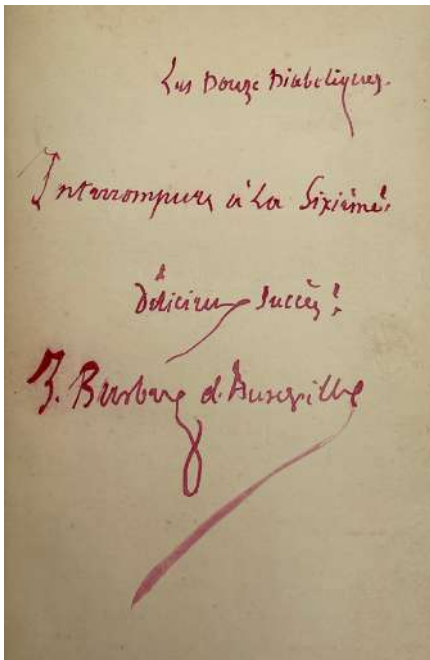 Les Douze Diaboliques.
Interrompues à La Sixième!
Délicieux Succès!
J. Barbey d'Aurevilly